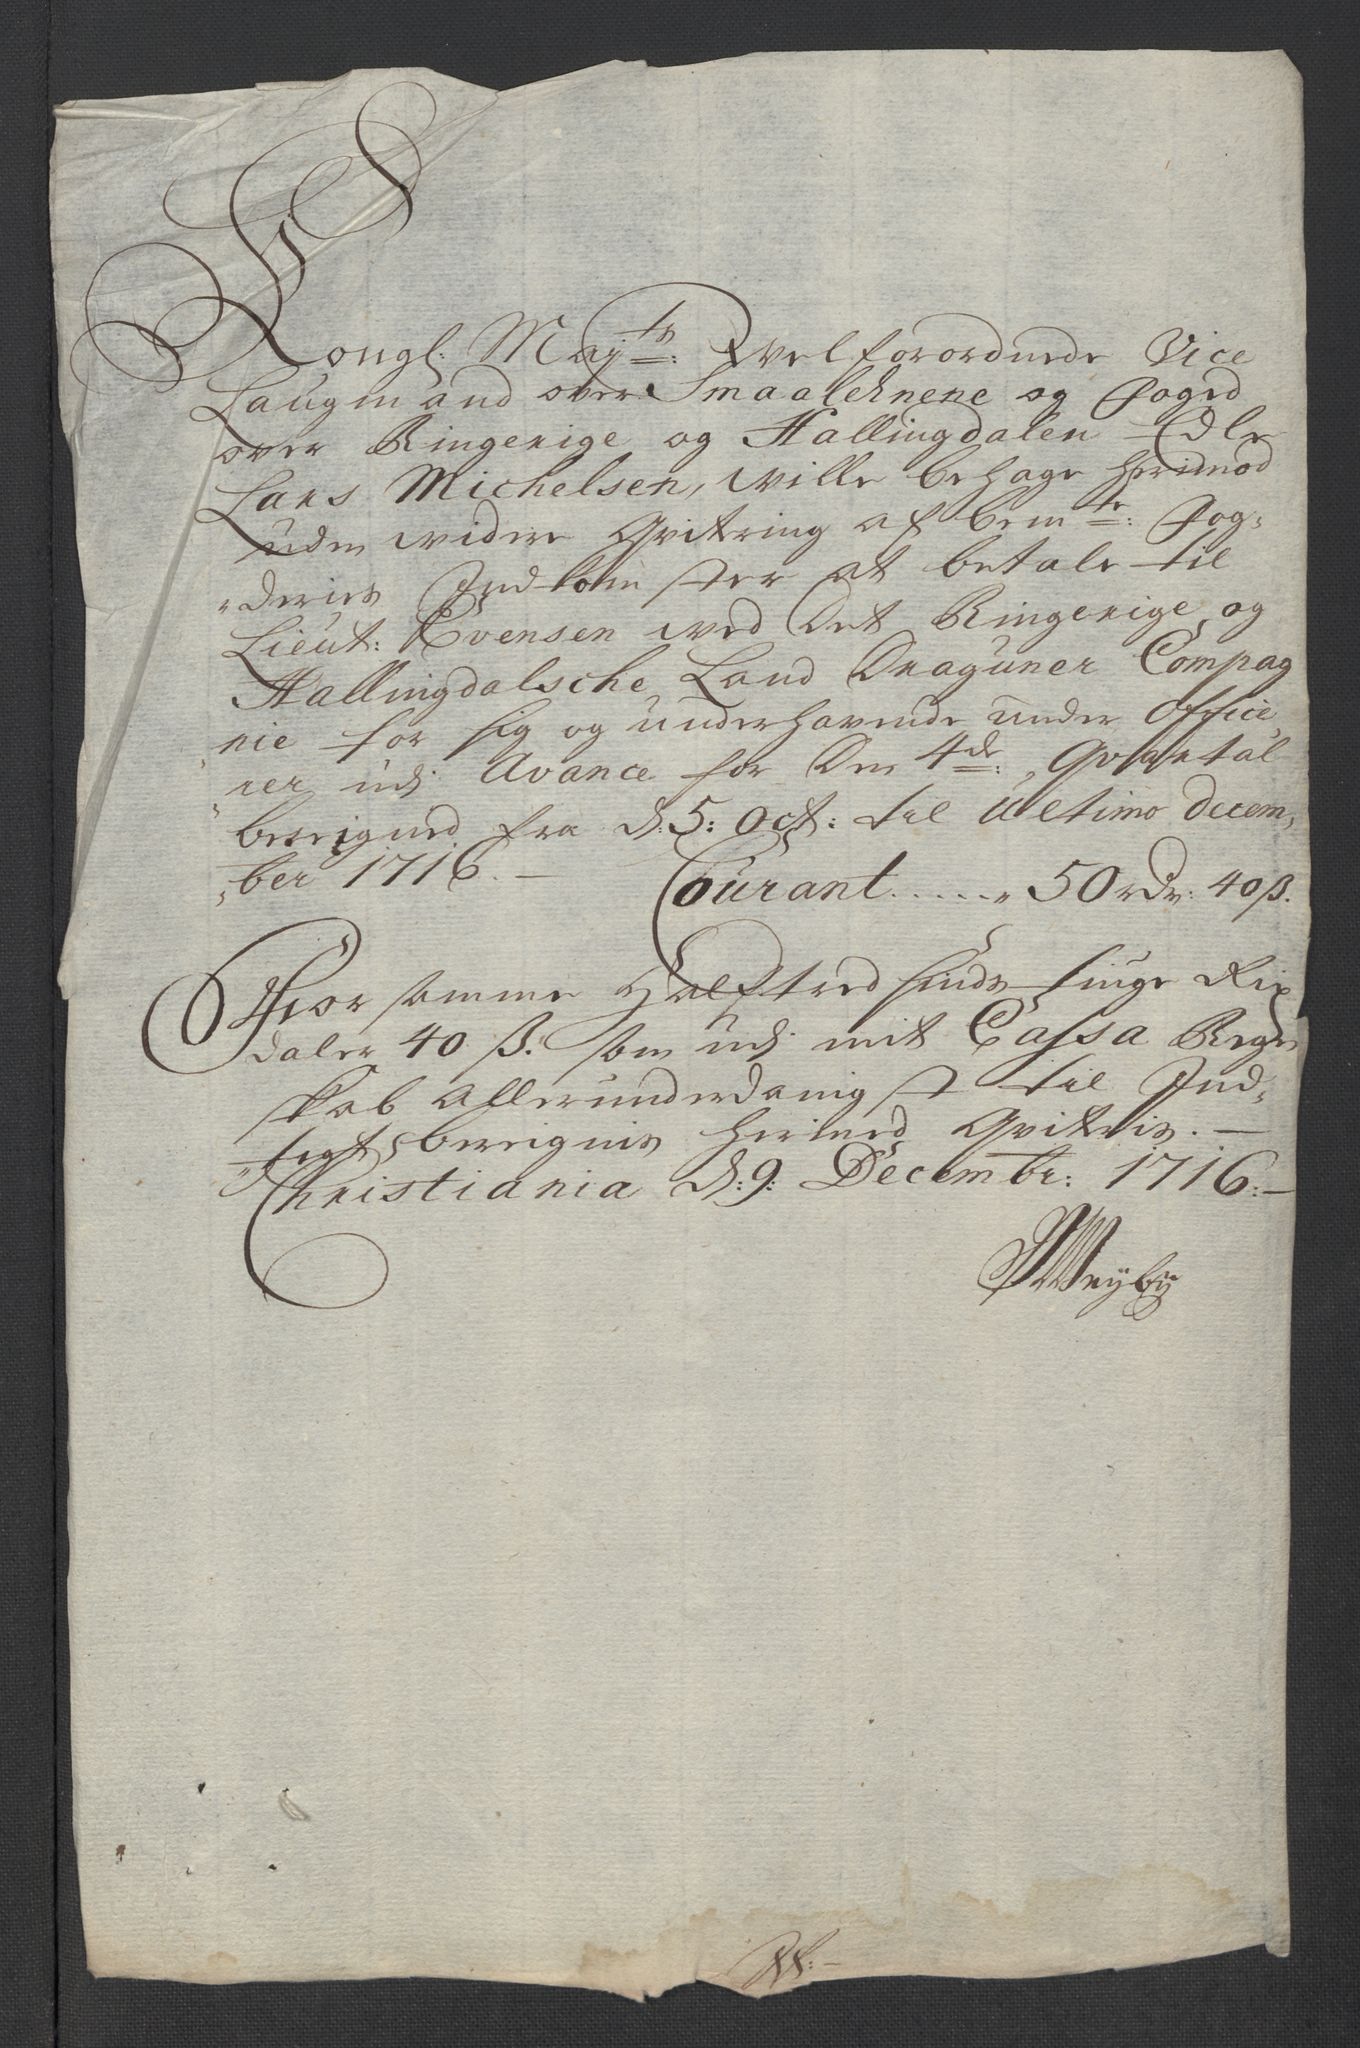 Kongl: Maj:ts: welforordnede Vice
Laugmand over Smaalehnene og Foged
over Ringerige og Hallingdalen Edle
Lars Michelsen, wille behage herimod
uden widere Qvitering af bem:te: Fog-
deries Indkomster at betale til
Lieut: Evensen wed Det Ringerige og
Hallingdalsche Land Draguner Compag
nie for sig og underhavende under Office
rer udj Avance for Den 4de: Qvartal
bereigned fra d: 5: Oct: til Ultimo Decem,
ber 1716. —
Courant ...... 50 rdr: 40 ß.
Hvor somme Halftredsinds tiuge Rix
daler 40 ß. som udj mit Cassa Regn
skab allerunderdanigst til Ind-
tegt bereignis herimed Qviteris. —
Christiania d: 9: Decembr: 1716: —
Weyby